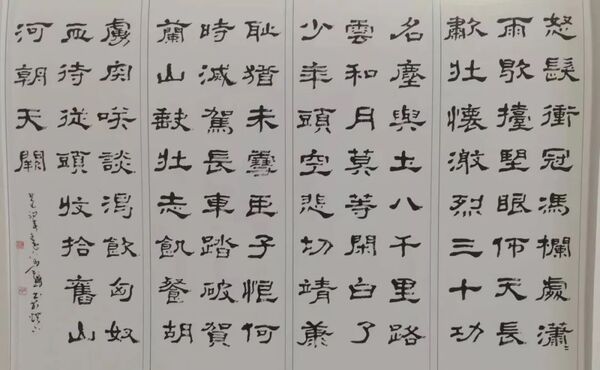 怒髮衝冠馮欄處瀟〻
雨歇擡望眼仰天長
歗壮懷激烈三十功
名塵與土八千里路
雲和月莫等閑白了
少年頭空悲切靖康
耻猶未雪臣子恨何
時滅駕長車踏破賀
蘭山缺壮志飢餐胡
虜肉咲談渴飲匈奴
血待從頭收拾舊山
河朝天闕